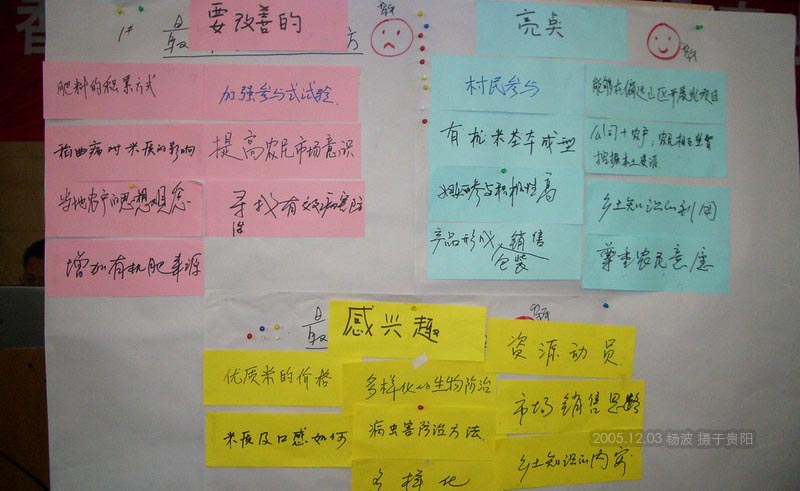 要改善的
1#
肥料的积累方式
加强参与式试验.
稻曲病对米质的影响
提高农民市场意识
当地农户的思想观念
寻找有效病害防
治
增加有机肥来源
亮点
村民参与
能够在偏远山区开展此项目
有机米基本成型
公司+农户,农民相互监督
挖掘本土资源
妇女参与积极性高
乡土知识的利用
产品形成、销售
包装
尊重农民意愿
感兴趣
优质米的价格
多样化的生物防治
资源动员
米质及口感如何
病虫害防治方法.
市场销售思路
多样化
乡土知识的内容
2005.12.03 杨波 摄于贵阳